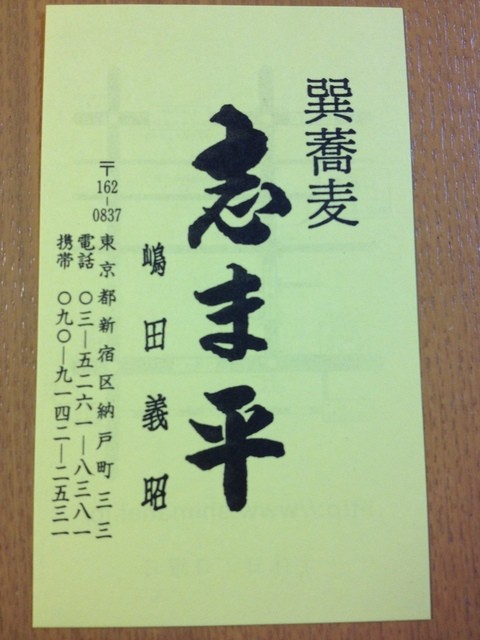 巽蕎麦
志ま平
嶋田義昭
〒162-0837
東京都新宿区納戸町三三
電話 〇三―五二六一―八三八一
携帯 〇九〇―九一四二―二五三一